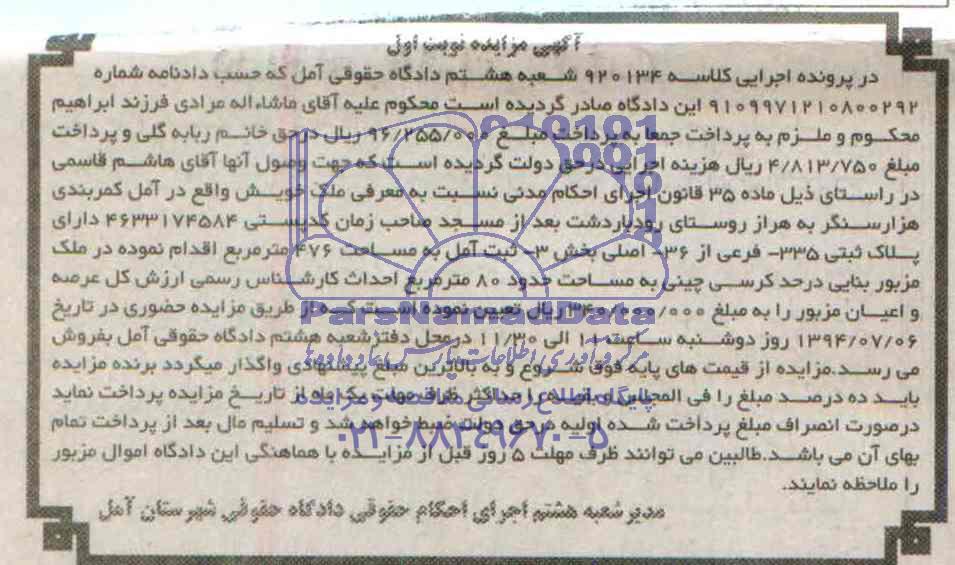 آگهی مزایده نوبت اول
در پرونده اجرایی کلاسه ۹۲۰۱۳۴ شعبه هشتم دادگاه حقوقی آمل که حسب دادنامه شماره
۹۱۰۹۹۷۱۲۱۰۸۰۰۲۹۲ این دادگاه صادر گردیده است محکوم علیه آقای ماشاءاله مرادی فرزند ابراهیم
محکوم و ملزم به پرداخت جمعا به پرداخت مبلغ ۹۶/۲۵۵/۰۰۰ ریال درحق خانم ربابه گلی و پرداخت
مبلغ ۴/۸۱۳/۷۵۰ ریال هزینه اجرایی درحق دولت گردیده است که جهت وصول آنها آقای هاشم قاسمی
در راستای ذیل ماده ۳۵ قانون اجرای احکام مدنی نسبت به معرفی ملک خویش واقع در آمل کمربندی
هزارسنگر به هراز روستای رودباردشت بعد از مسجد صاحب زمان کدپستی ۴۶۳۳۱۷۴۵۸۴ دارای
پلاک ثبتی ۳۳۵- فرعی از ۳۶- اصلی بخش ۳- ثبت آمل به مساحت ۴۷۶ مترمربع اقدام نموده در ملک
مزبور بنایی درحد کرسی چینی به مساحت حدود ۸۰ مترمربع احداث کارشناس رسمی ارزش کل عرصه
و اعیان مزبور را به مبلغ ۳۴۰/۰۰۰/۰۰۰ ریال تعیین نموده است که از طریق مزایده حضوری در تاریخ
۱۳۹۴/۰۷/۰۶ روز دوشنبه ساعت ۱۱ الی ۱۱/۳۰ درمحل دفترشعبه هشتم دادگاه حقوقی آمل بفروش
می رسد.مزایده از قیمت های پایه فوق شروع و به بالاترین مبلغ پیشنهادی واگذار میگردد برنده مزایده
باید ده درصد مبلغ را فی المجلس و بقیه را حداکثر ظرف مهلت یک ماه از تاریخ مزایده پرداخت نماید
درصورت انصراف مبلغ پرداخت شده اولیه درحق دولت ضبط خواهد شد و تسلیم مال بعد از پرداخت تمام
بهای آن می باشد.طالبین می توانند ظرف مهلت ۵ روز قبل از مزایده با هماهنگی این دادگاه اموال مزبور
را ملاحظه نمایند.
مدیر شعبه هشتم اجرای احکام حقوقی دادگاه حقوقی شهرستان آمل
ParsNamadData
مرکز فرآوری اطلاعات پارس نماد داده ها
پایگاه اطلاع رسانی مناقصه و مزایده
۰۲۱-۸۸۳۴۹۶۷۰-۵